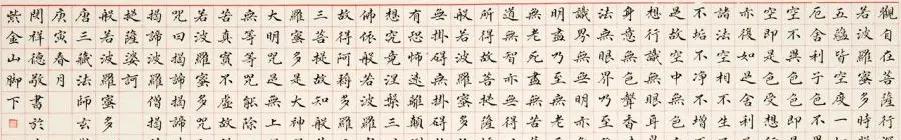 觀自在菩薩行
若波羅蜜多時
五蘊皆空度一
厄舍利子色不
空不異色色即
空即是色受想
亦復如是舍利
諸法空相不生
不垢不淨不增
是故空中無色
想行識無眼耳
身意無色聲香
法無眼界乃至
識界無無明亦
明盡乃至無老
無老死盡無苦
道無智亦無得
所得故菩提薩
般若波羅蜜多
無掛礙無掛礙
有恐怖遠離顛
想究竟涅槃三
佛依般若波羅
故得阿耨多羅
三菩提故知般
羅蜜多是大神
大明咒是無上
無等等咒能除
苦真實不虛故
若波羅蜜多咒
咒曰揭諦揭諦
揭諦波羅僧揭
提薩婆訶
般若波羅蜜多
唐三藏法師玄
庚寅春月
閔祥德敬書於
紫金山脚下